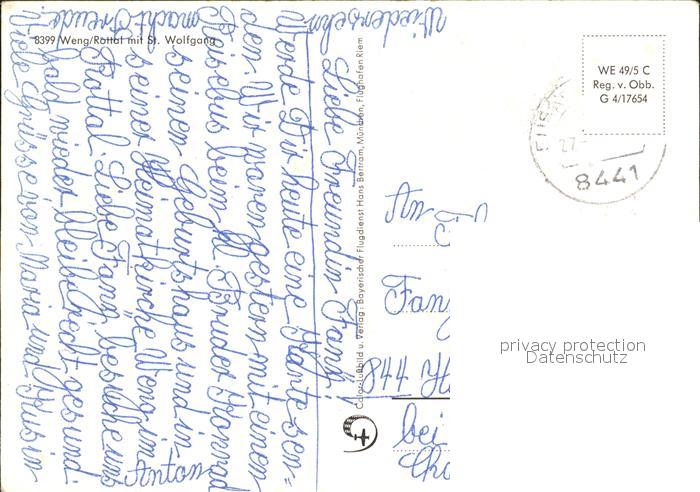 8399 Weng/Rottal mit St. Wolfgang
Liebe Freundin Fanf!
Werde Dir heute eine Karte sen=
den. Wir waren gestern mit einen
beim hl. Bruder Konrad
seinen Geburtshaus und in
seiner Heimatkirche Weng im
Rottal. Liebe Fanf besuche uns
bald wieder bleib recht gesund.
Viele Grüsse von Maria und
Anton
macht Freude
Wiedersehn
Color-Luftbild u. Verlag: Bayerischer Flugdienst Hans Bertram, München, Flughafen Riem
WE 49/5 C
Reg. v. Obb.
G 4/17654
27
8441
An
Fan
844
bei
privacy protection
Datenschutz